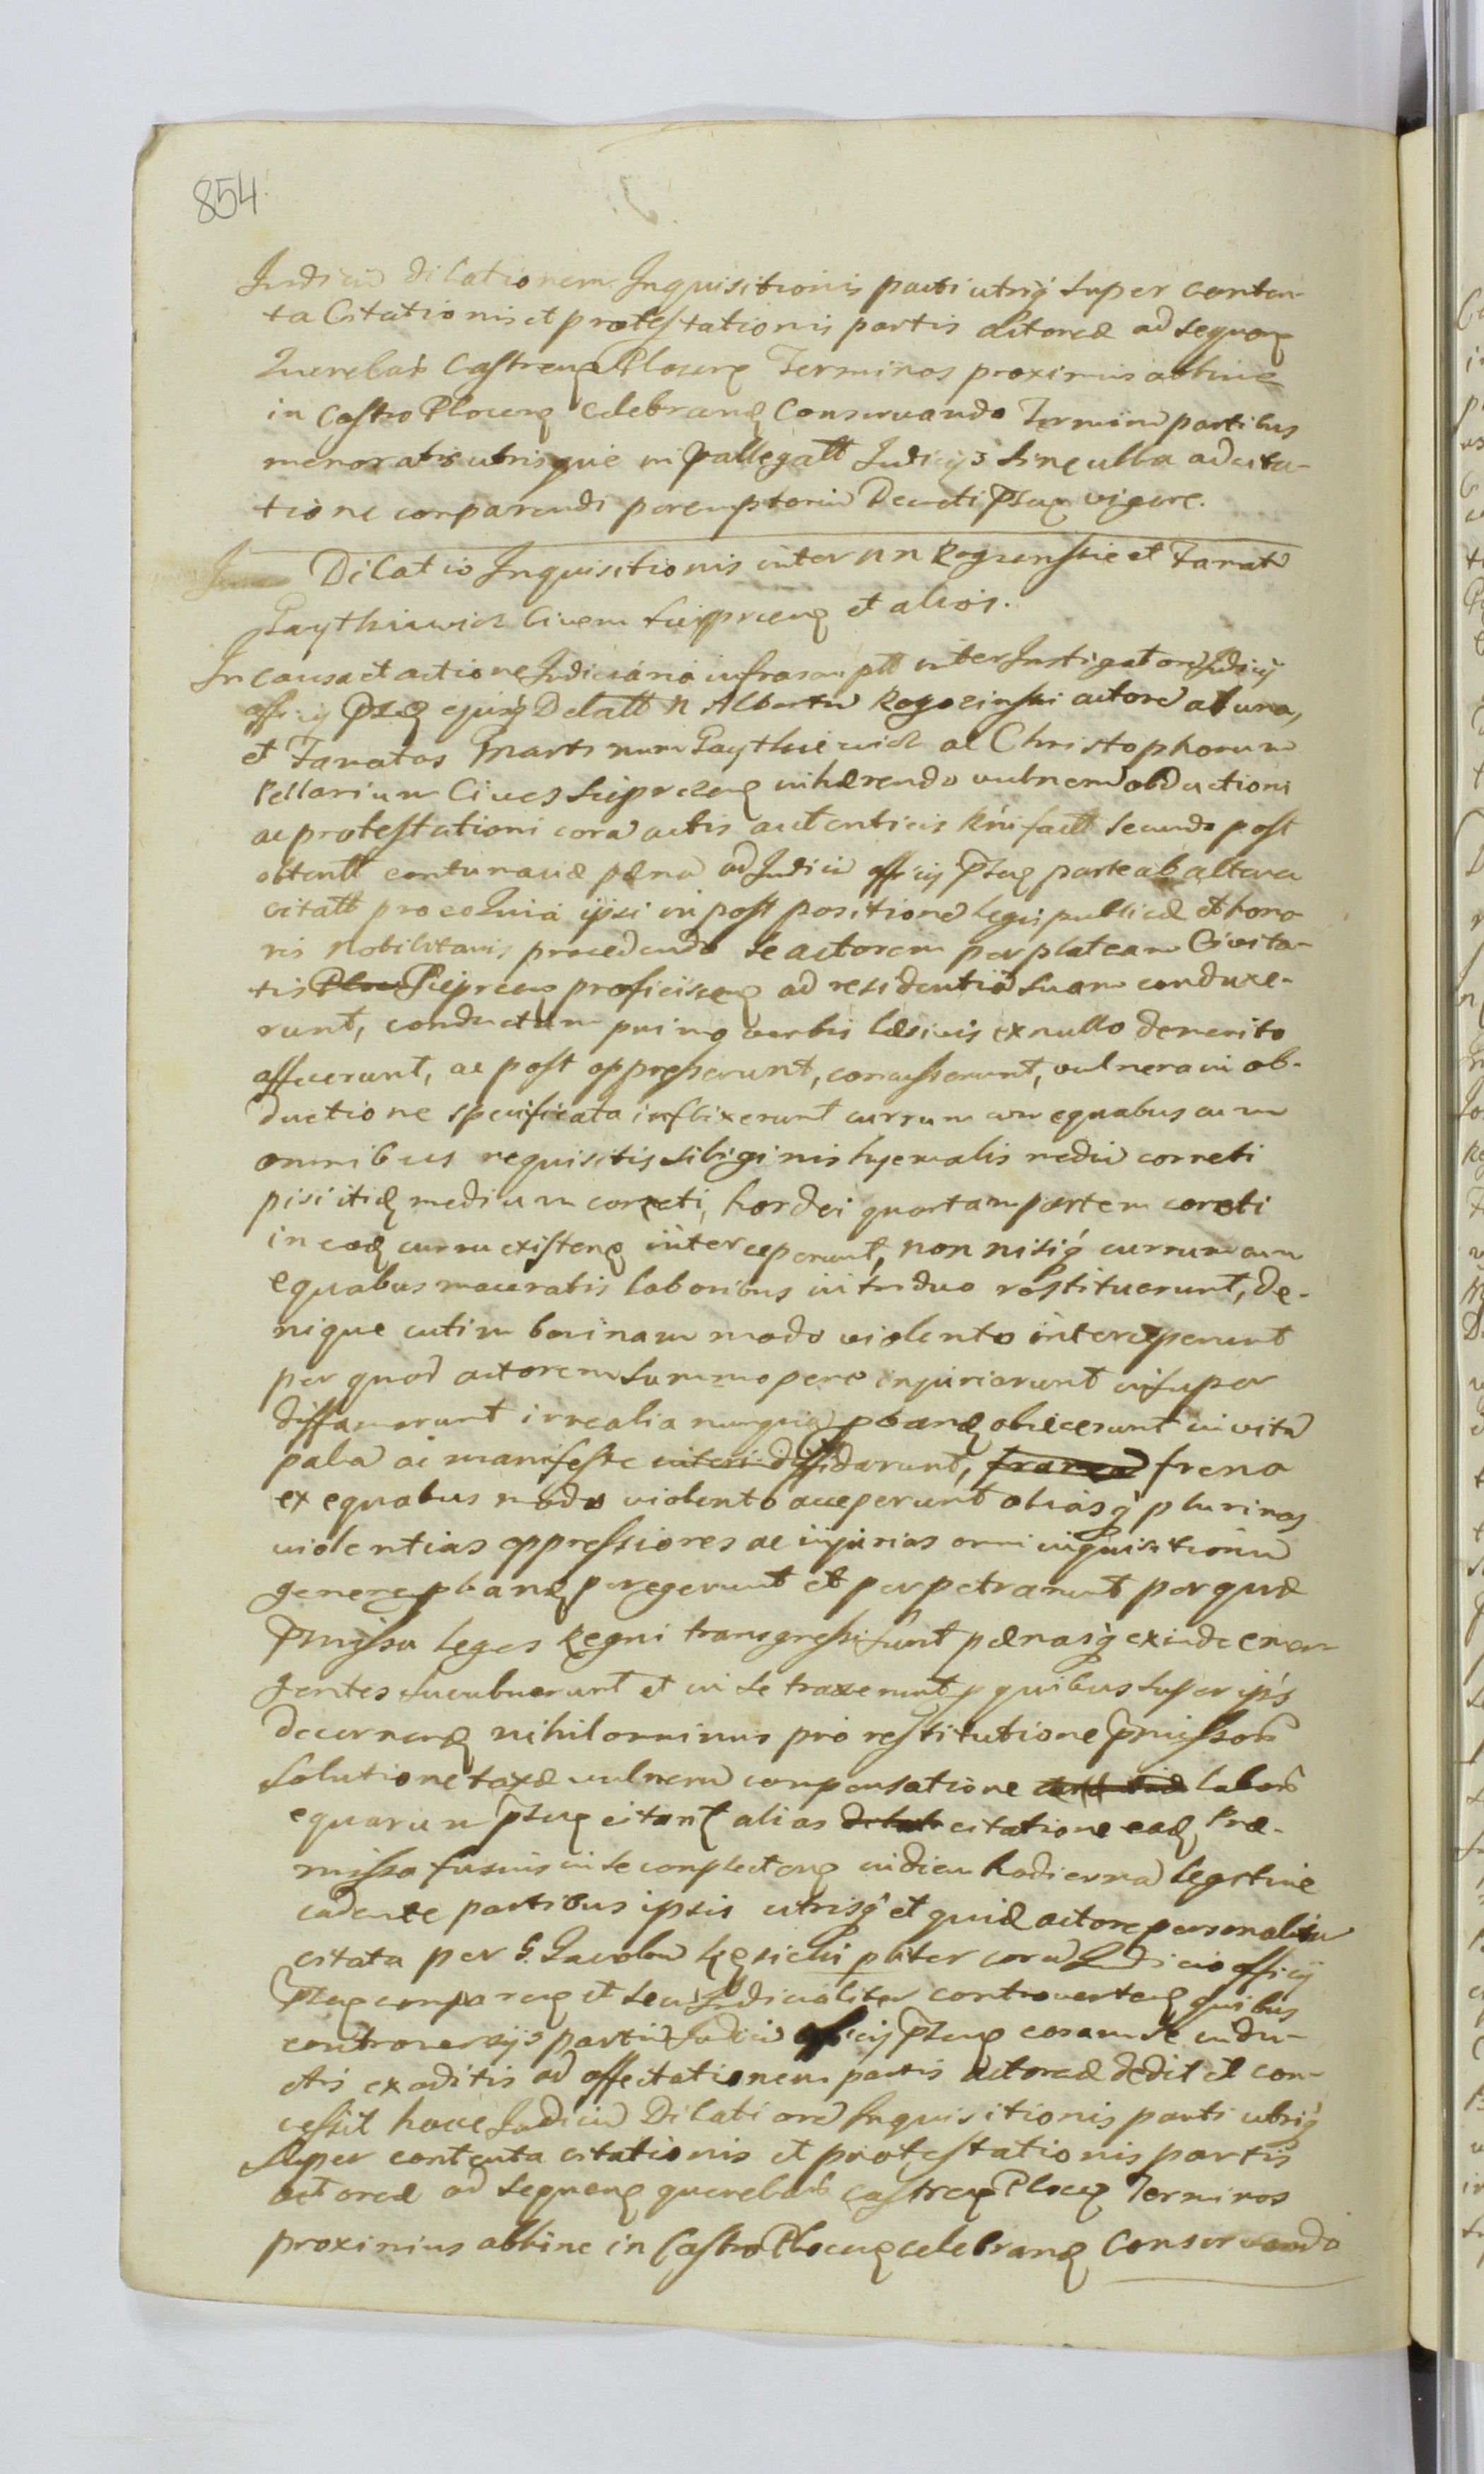 854.
Judiciũ dilationem Inquisitionis parti utriq́ super conten-
ta Citationis et protestationis partis actoreæ ad sequenꝫ
Querelarũ Castrenꝫ Plocenꝫ Terminos proximius abhinc
in Castro Plocenꝫ celebranꝫ Conservando Terminũ partibus
memoratis utrisque in pallegatt Judicijs sine ulla adcita-
tione comparendi peremptoriũ Decreti p̃senꝫ vigore.
Dilatio Inquisitionis inter nn Rogozinskie et Famatũ
Paythiewich Civem Sieprcenꝫ et alios.
In causa et actione Judiciaria infrascriptt inter Instigatorẽ Judicij
officij p̃senꝫ ejusq́ Delatt N Albertũ Rogozinski actorẽ ab una,
et Famatos Martinum Paythiewich ac Christophorum
Pellarium Cives Sieprcenꝫ inhærendo vulnerũ obductioni
ac protestationi corã actis autenticis Rñi factt secundo post
obtentt contumaciæ pænã ad Judiciũ officij p̃senꝫ parte ab altera
citatt pro eo Quia ipsi in post positionẽ legis publicæ et hono-
ris Nobilitaris procedendo se actorem per plateam Civita-
tis Sieprcenꝫ proficiscenꝫ ad residentiã suam conduxe-
runt, conductum primo verbis læsivis ex nullo demerito
affecerunt, ac post oppresserunt, concusserunt, vulnera in ob-
ductione specificata inflixerunt currum cum equabus cum
omnibus requisitis siliginis hyemalis mediũ coreti
pisi itidẽ medium coreti, hordei quartam partem coreti
in eodẽ curru existenꝫ interceperunt, non nisiq́ currum cum
equabus maceratis laboribus in triduo restituerunt, de-
nique cutim bovinam modo violento interceperunt
per quod actorem summopere injuriarunt insuper
diffamarunt irrealia nunquã pbanꝫ obiecerunt in vitã
palã ac manifeste diffidarunt, frena
ex equabus modo violento acceperunt aliasq́ plurimas
violentias oppressiones ac injurias omni inquisitionũ
genere pbanꝫ peregerunt et perpetrarunt per quæ
p̃missa leges Regni transgressi sunt pænasq́ exinde emer-
gentes sucubuerunt et in se traxerunt p quibus super ipsis
decernenꝫ nihilominus pro restitutione p̃missorũ
solutione taxæ vulnerũ compensatione laborũ
equarum p̃senꝫ citant alias citatione eadẽ Præ-
missa fusius in se complectenꝫ in diem hodiernã legitime
cadente partibus ipsis utrisq́ et quidẽ actore personaliter
citata per G. Jacobũ pliter corã Judicio officij
p̃senꝫ comparenꝫ et secũ Judicialiter controvertenꝫ quibus
controversijs partiũ Judiciũ officij p̃senꝫ coram se indu-
ctis exaditis ad affectationem partis actoreæ dedit et con-
cessit hocce Judiciũ Dilationẽ Inquisitionis parti utriq́
super contenta citationis et protestationis partis
actoreæ ad sequenꝫ querelarũ castrenꝫ Plocenꝫ Terminos
proximius abhinc in Castro Plocenꝫ celebranꝫ Conservando